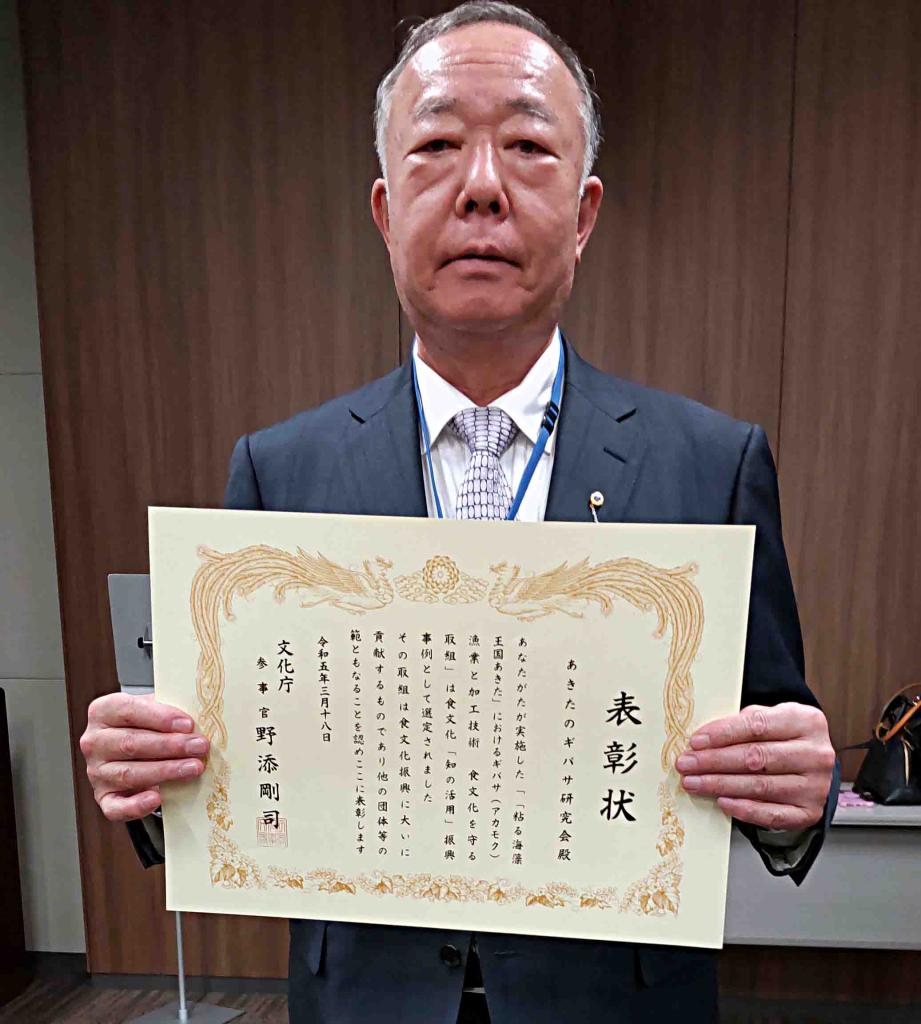 表彰状
あきたのギバサ研究会殿
あなたがたが実施した「「粘る海藻
王国あきた」におけるギバサ(アカモク)
漁業と加工技術 食文化を守る
取組」は食文化「知の活用」振興
事例として選定されました
その取組は食文化振興に大いに
貢献するものであり他の団体等の
範ともなることを認めここに表彰します
令和五年三月十八日
文化庁
参事官 野添剛司